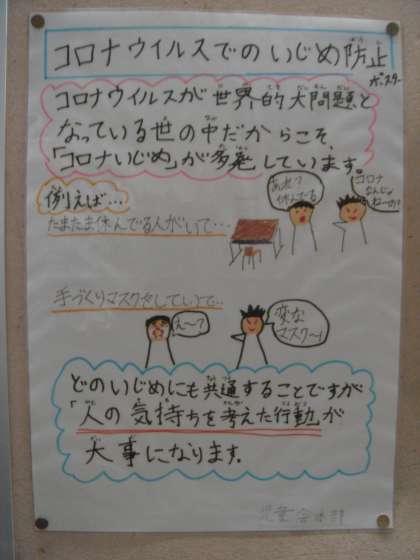 コロナウイルスでのいじめ防止
ポスター
コロナウイルスが世界的大問題と
なっている世の中だからこそ、
「コロナいじめ」が多発しています。
例えば…
たまたま休んでる人がいて…
あれ?
休んでる
コロナ
なんじゃ
ねーの?
手づくりマスクをしていて…
え〜?
変な
マスク〜!
どのいじめにも共通することですが
「人の気持ちを考えた行動」が
大事になります。
児童会本部